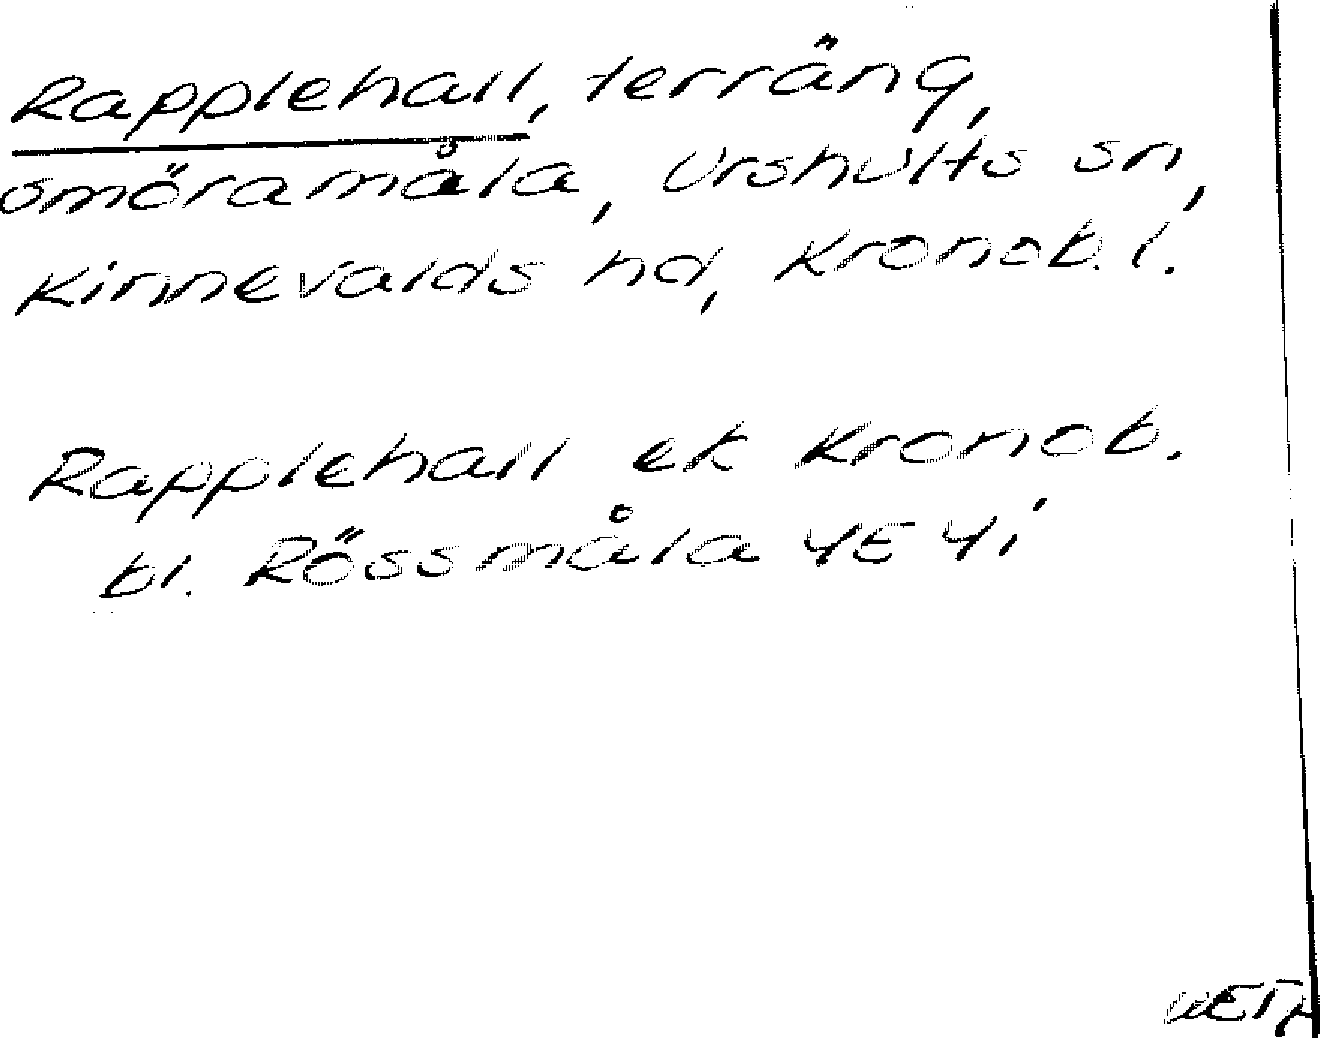 Rapplehall, terräng,
Smöramåla, Urshults sn,
Kinnevalds hd, Kronob. l.
Rapplehall ek Kronob.
bl. Rössmåla 4E 4i